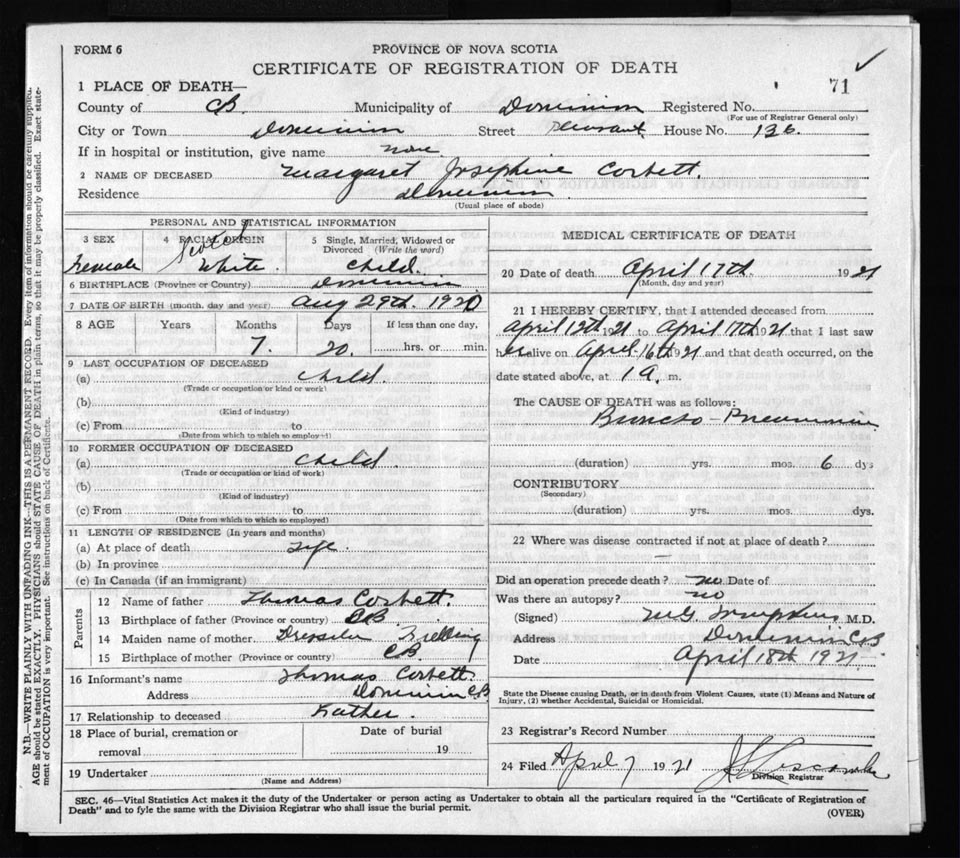 FORM 6
PROVINCE OF NOVA SCOTIA
CERTIFICATE OF REGISTRATION OF DEATH
71
1 PLACE OF DEATH—
County of CB Municipality of Dominion Registered No.
(For use of Registrar General only)
City or Town Dominion Street Pleasant House No. 136
If in hospital or institution, give name none
2 NAME OF DECEASED Margaret Josephine Corbett.
Residence Dominion
(Usual place of abode)
PERSONAL AND STATISTICAL INFORMATION
3 SEX 4 RACIAL ORIGIN 5 Single, Married, Widowed or Divorced (Write the word)
Female Scotch White. Child.
6 BIRTHPLACE (Province or Country) Dominion
7 DATE OF BIRTH (month, day and year) Aug 29th. 1920
8 AGE Years Months Days If less than one day,
7. 20. hrs. or min.
9 LAST OCCUPATION OF DECEASED
(a) Child.
(Trade or occupation or kind of work)
(b)
(Kind of industry)
(c) From to
(Date from which to which so employed)
10 FORMER OCCUPATION OF DECEASED
(a) Child.
(Trade or occupation or kind of work)
(b)
(Kind of industry)
(c) From to
(Date from which to which so employed)
11 LENGTH OF RESIDENCE (In years and months)
(a) At place of death Life.
(b) In province
(c) In Canada (if an immigrant)
Parents
12 Name of father Thomas Corbett.
13 Birthplace of father (Province or country) CB
14 Maiden name of mother
15 Birthplace of mother (Province or country) CB
16 Informant's name Thomas Corbett
Address Dominion CB
17 Relationship to deceased Father.
18 Place of burial, cremation or removal
Date of burial
19
19 Undertaker
(Name and Address)
MEDICAL CERTIFICATE OF DEATH
20 Date of death April 17th 1921
(Month, day and year)
21 I HEREBY CERTIFY, that I attended deceased from
April 12th 1921 to April 17th 1921 that I last saw
her alive on April 16th 1921 and that death occurred, on the
date stated above, at 1 A. m.
The CAUSE OF DEATH was as follows:
Broncho-Pneumonia
(duration) yrs. mos. 6 dys
CONTRIBUTORY
(Secondary)
(duration) yrs. mos. dys.
22 Where was disease contracted if not at place of death?
—
Did an operation precede death? no Date of
Was there an autopsy? no
(Signed) M.D.
Address Dominion CB
Date April 18th 1921
State the Disease causing Death, or in death from Violent Causes, state (1) Means and Nature of
Injury, (2) whether Accidental, Suicidal or Homicidal.
23 Registrar's Record Number
24 Filed April 7 1921
Division Registrar
SEC. 46—Vital Statistics Act makes it the duty of the Undertaker or person acting as Undertaker to obtain all the particulars required in the "Certificate of Registration of
Death" and to fyle the same with the Division Registrar who shall issue the burial permit.
(OVER)
N.B.—WRITE PLAINLY WITH UNFADING INK—THIS IS A PERMANENT RECORD. Every item of information should be carefully supplied.
AGE should be stated EXACTLY. PHYSICIANS should STATE CAUSE OF DEATH in plain terms, so that it may be properly classified. Exact state-
ment of OCCUPATION is very important. See instructions on back of Certificate.